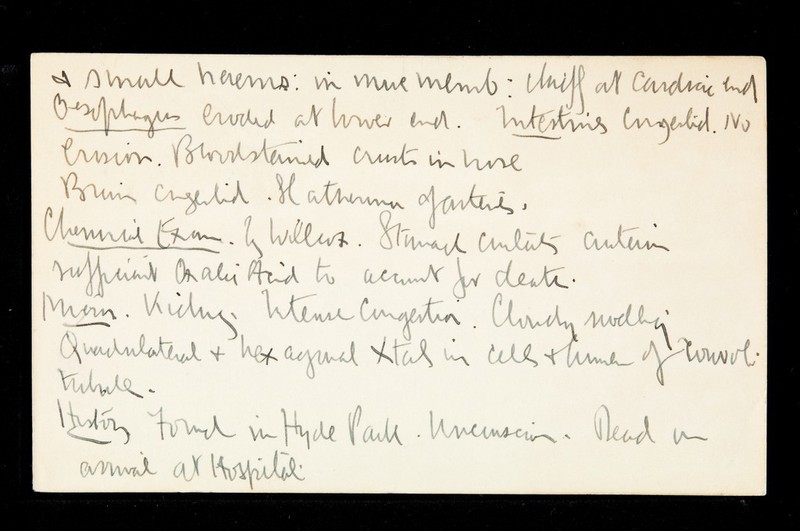 & small haems: in muc memb: chiefl at cardiac end
Oesophagus eroded at lower end. Intestines Congested. No
erosion. Bloodstained crusts in nose
Brain congested. Sl atheroma of arteries.
Chemical Exam. by Willcox. Stomach contents contain
sufficient Oxalic Acid to account for death.
Micro. Kidney. Intense Congestion. Cloudy swelling
Quadrilateral & hexagonal Xtals in cells & lumen of convol:
tubule.
History Found in Hyde Park. Unconscious. Dead on
arrival at Hospital.